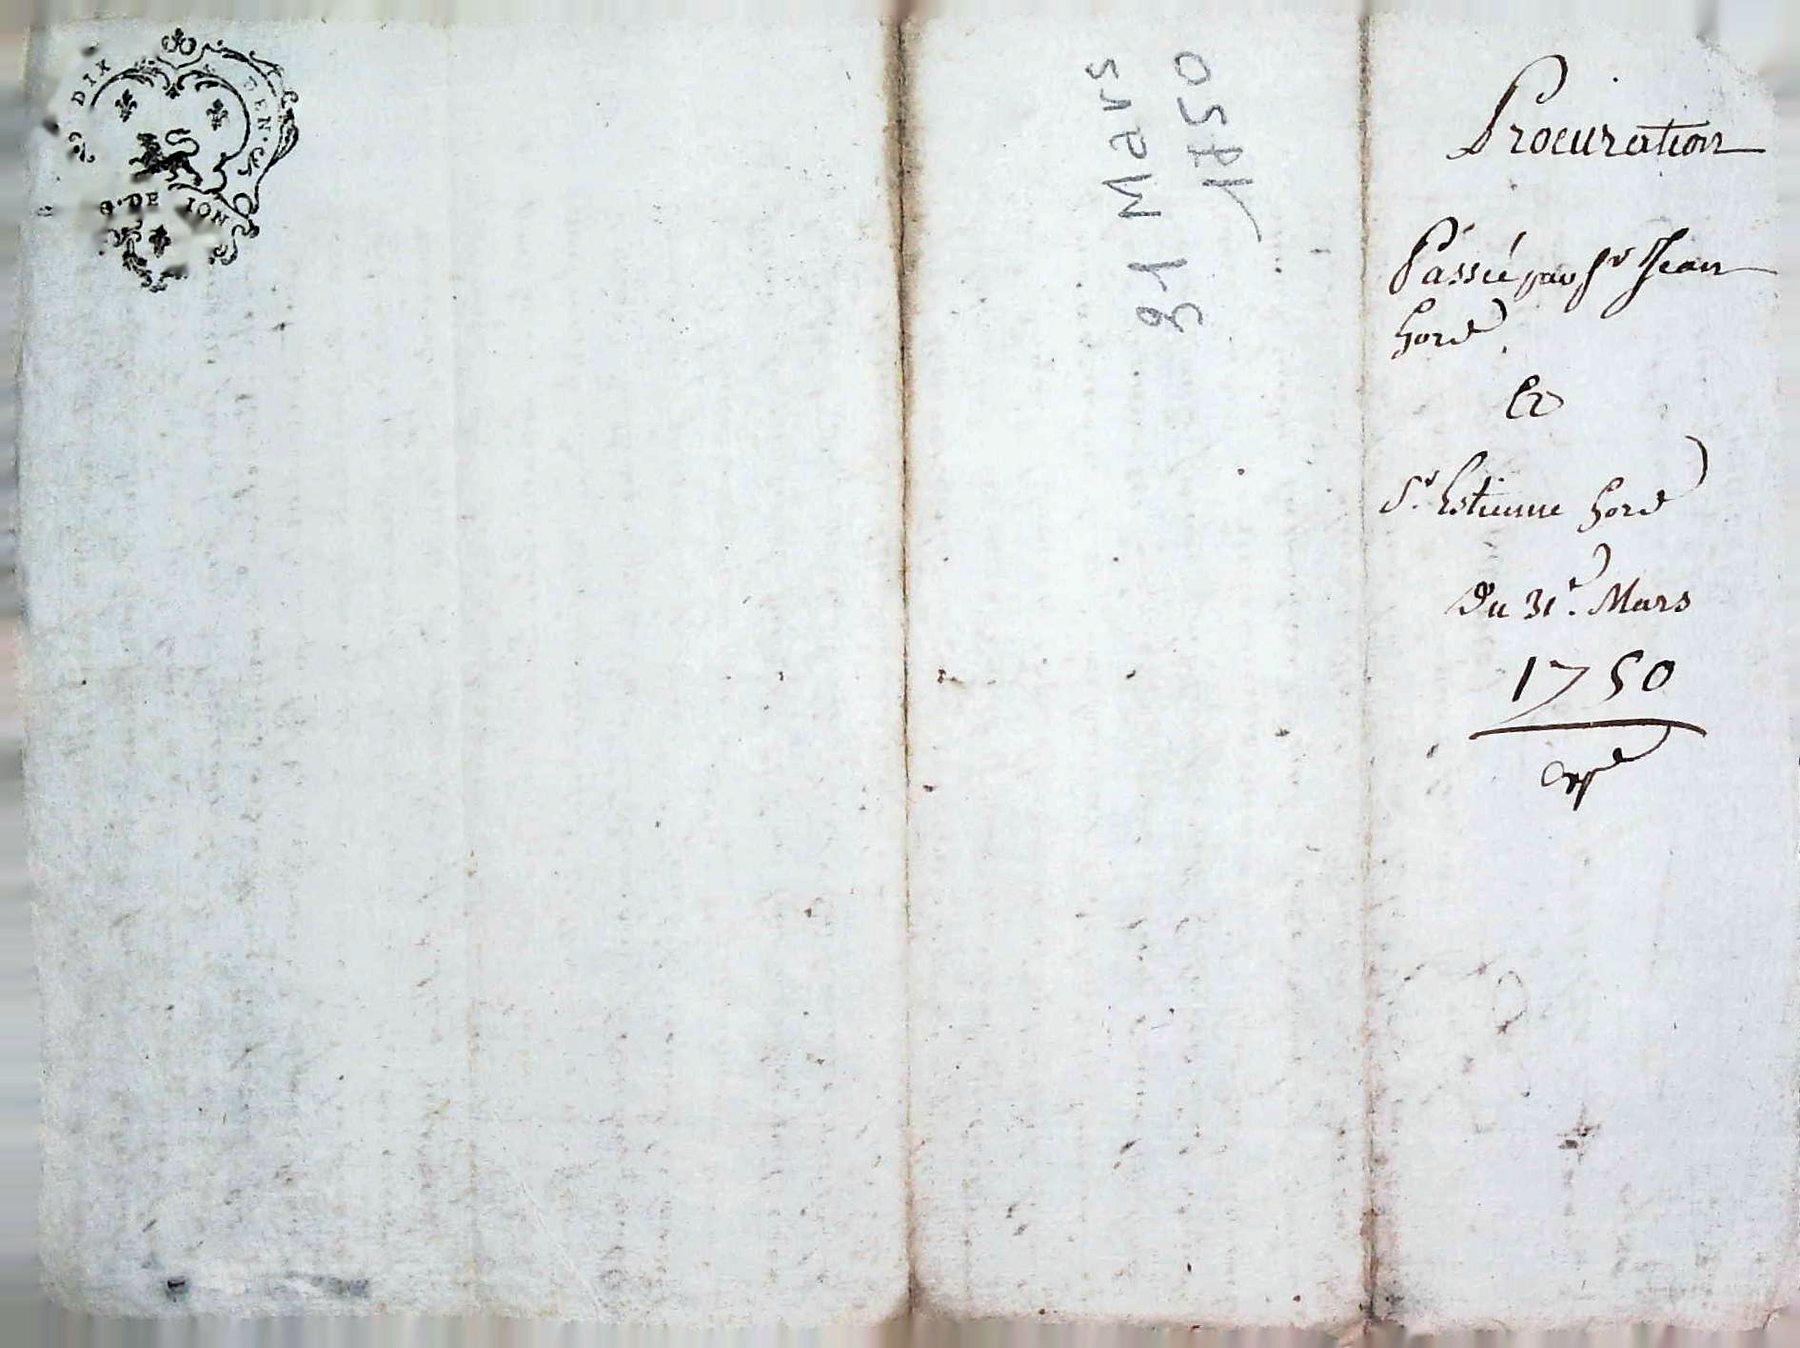 DIX DEN.S
G.DE LION
31 Mars
1750
Procuration
Passée par Sr Jean
horé
Et
Sr. Estienne horé
Du 31e. Mars
1750